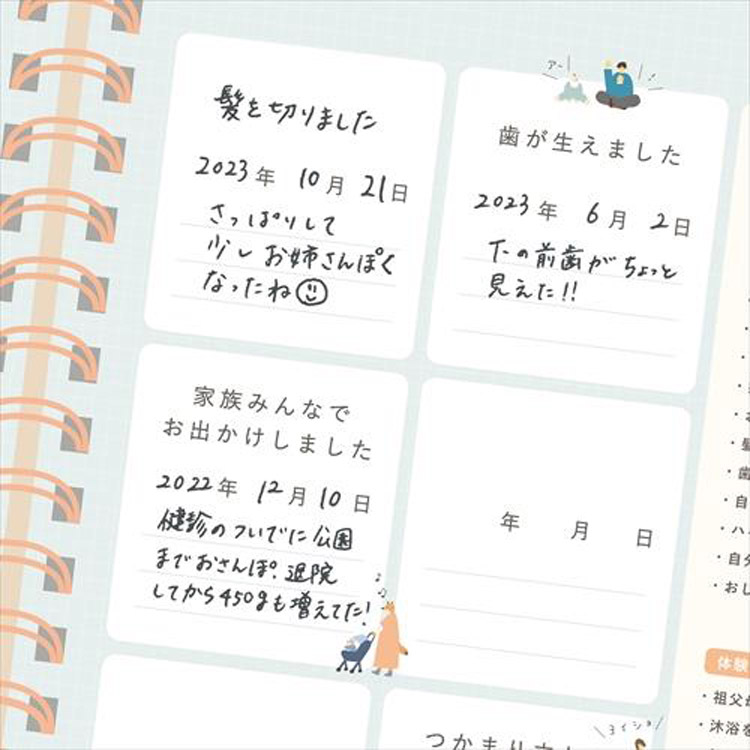 髪を切りました
2023年 10月 21日
さっぱりして
少し お姉さんぽく
なったね
アー
歯が生えました
2023年 6月 2日
下の前歯がちょっと
見えた!!
家族みんなで
お出かけしました
2022年 12月 10日
健診のついでに公園
までおさんぽ。退院
してから450gも増えてた!
年 月 日
・歯
・自
・ハ
・自分
・おし
体験
・祖父母
・沐浴を
つかまり立
ヨイショ